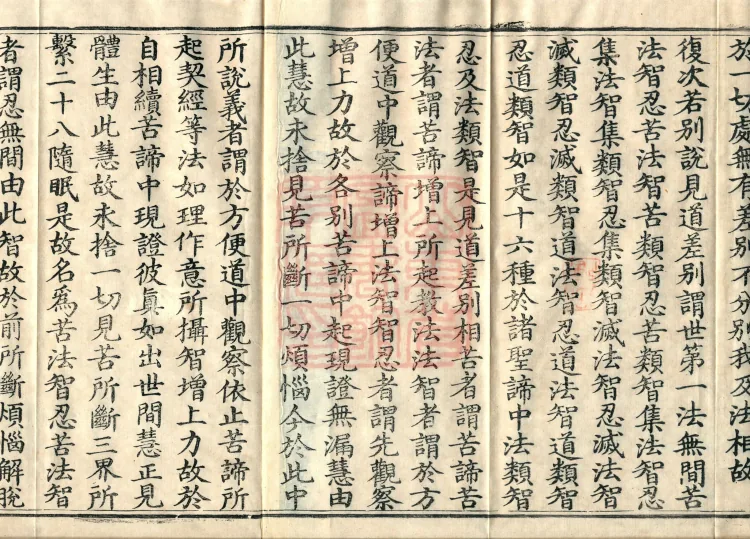 於一切處無有差別不分別我及法相故
復次若別說見道差別謂世第一法無間苦
法智忍苦法智苦類智忍苦類智集法智忍
集法智集類智忍集類智滅法智忍滅法智
滅類智忍滅類智道法智忍道法智道類智
忍道類智如是十六種於諸聖諦中法類智
忍及法類智是見道差別相苦者謂苦諦苦
法者謂苦諦增上所起教法法智者謂於方
便道中觀察諦增上法智智忍者謂先觀察
增上力故於各別苦諦中起現證無漏慧由
此慧故永捨見苦所斷一切煩惱今於此中
所說義者謂於方便道中觀察依止苦諦所
起契經等法如理作意所攝智增上力故於
自相續苦諦中現證彼眞如出世間慧正見
體生由此慧故永捨一切見苦所斷三界所
繫二十八隨眠是故名爲苦法智忍苦法智
者謂忍無間由此智故於前所斷煩惱解脫